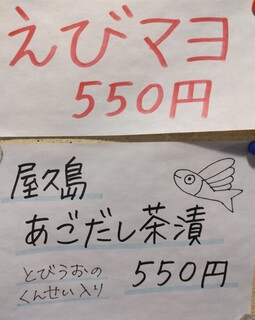 えびマヨ
550円
屋久島
あごだし茶漬
とびうおの
くんせい入り
550円